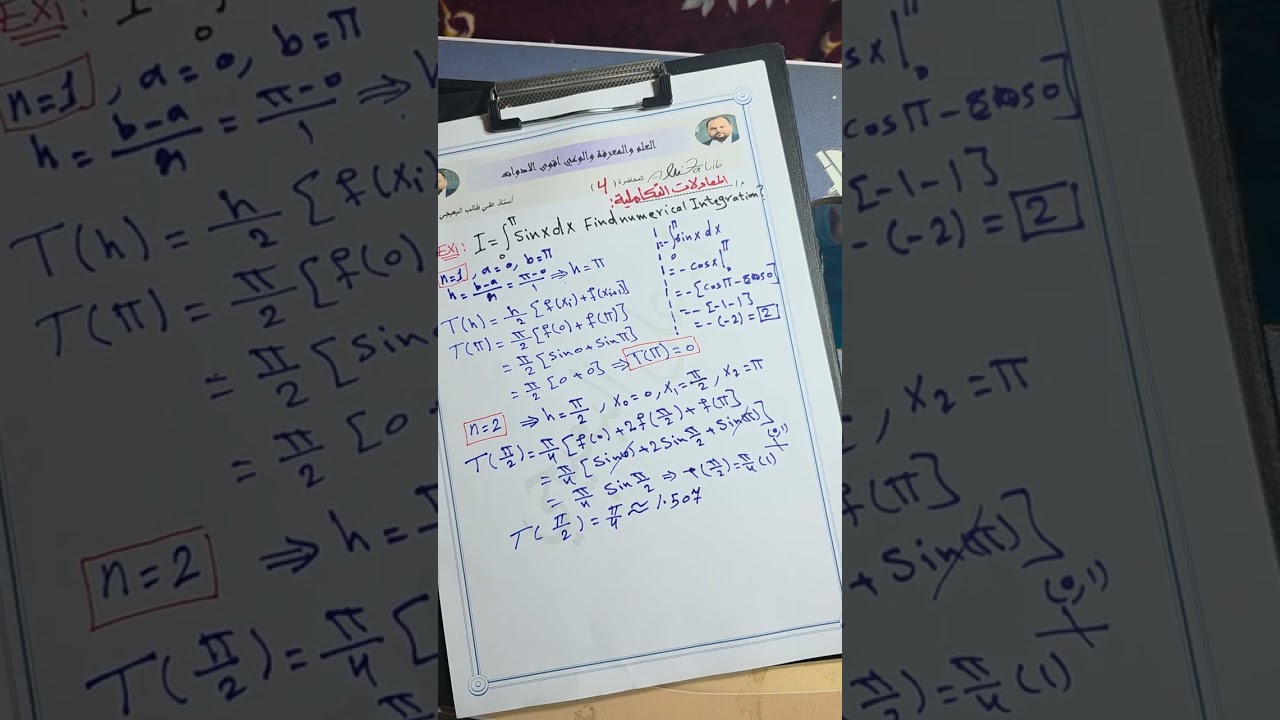 العلم والمعرفة والوعي اقوى الادوات
استاذ علي طالب
المحاضرة (4)
المعادلات التكاملية:
EX1: I = ∫₀^π Sinx dx Find numerical Integration?
n=1, a=0, b=π
h = b-a/n = π-0/1 ⇒ h=π
T(h) = h/2 [f(xi)+f(xi+1)]
T(π) = π/2 [f(0)+f(π)]
= π/2 [Sin0+Sinπ]
= π/2 [0+0] ⇒ T(π)=0
= ∫₀^π Sinx dx
= -cosx|₀^π
= -[cosπ - cos0]
= -[-1-1]
= -(-2) = 2
n=2 ⇒ h=π/2, x₀=0, x₁=π/2, x₂=π
T(π/2) = π/4 [f(0)+2f(π/2)+f(π)]
= π/4 [Sin(0)+2Sinπ/2+Sin(π)]
= π/4 Sinπ/2 ⇒ T(π/2)=π/4(1)
(0,1)
T(π/2) = π/4 ≈ 1.507